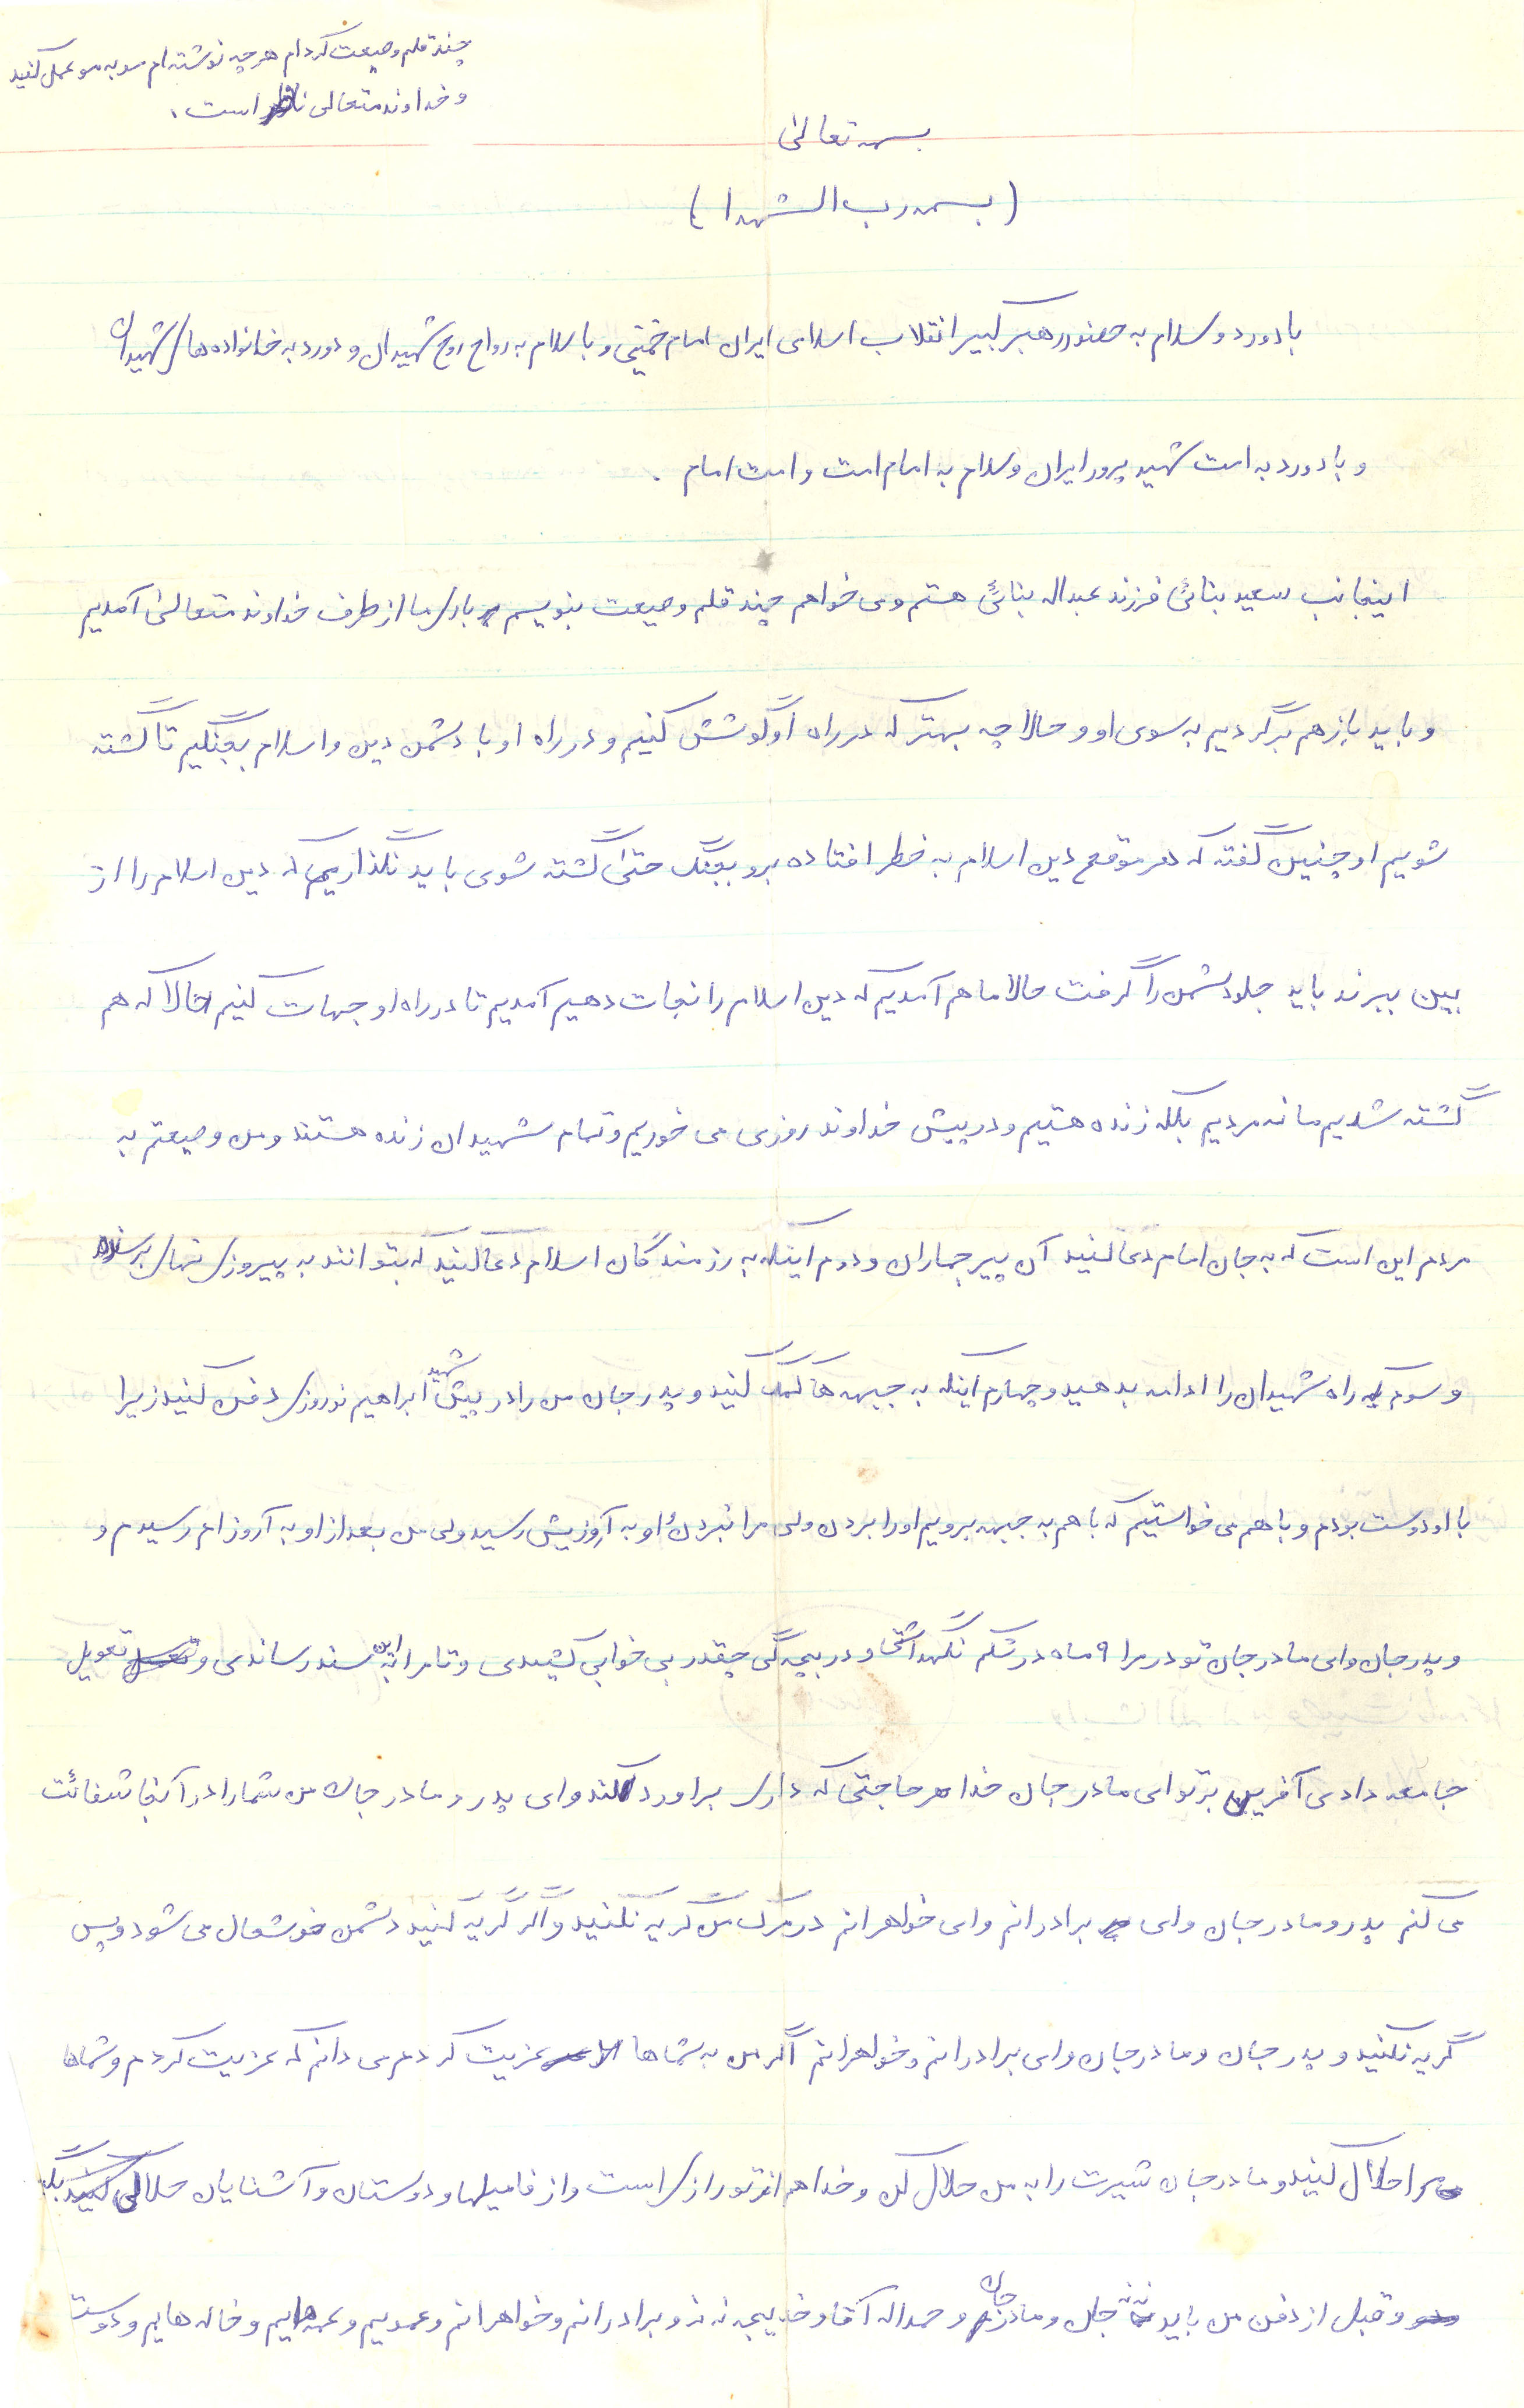 چند قلم وصیعت کردام هرچه نوشته‌ام مو به مو عمل کنید
و خداوند متعالی ناظر است .
بسمه تعالی
( بسمه رب الشهدا )
با دورد و سلام به حضور رهبر کبیر انقلاب اسلامی ایران امام خمینی و با سلام به رواح روح شهیدان و دورد به خانواده های شهیدان
و با دورد به امت شهید پرور ایران و سلام به امام امت و امت امام .
اینجانب سعید بنائی فرزند عبداله بنائی هستم و می خواهم چند قلم وصیعت بنویسم باری ما از طرف خداوند متعالی آمدیم
و باید باز هم برگردیم به سوی او و حالا چه بهتر که در راه او گوشش کنیم و در راه او با دشمن دین و اسلام بجنگیم تا گشته
شویم او چنین گفته که هر موقع دین اسلام به خطر افتاده برو بجنگ حتی گشته شوی باید نگذاریم که دین اسلام را از
بین ببرند باید جلو دشمن را گرفت حالا ما هم آمدیم که دین اسلام را نجات دهیم آمدیم تا در راه او جهات کنیم حالا که هم
گشته شدیم ما نه مردیم بلکه زنده هستیم و در پیش خداوند روزی می خوریم و تمام شهیدان زنده هستند و من وصیعتم به
مردم این است که به جان امام دعا کنید آن پیر جماران و دوم اینکه به رزمندگان اسلام دعا کنید که بتوانند به پیروزی نهای برسند
و سوم که راه شهیدان را ادامه بدهید و چهارم اینکه به جبهه ها کمک کنید و پدر جان من را در پیش شهید ابراهیم نوروزی دفن کنید زیرا
با او دوست بودم و با هم می خواستیم که با هم به جبهه برویم او را بردن ولی مرا نبردن او به آروزیش رسید ولی من بعد از او به آروزام رسیدم و
و پدر جان وای مادر جان تو در مرا ۹ ماه در شکم نگهداشتی و در بچه گی چقدر بی خوابی کشیدی و تا مرا به این سند رساندی و تحویل
جامعه دادی آفرین بر تو ای مادر جان خدا هر حاجتی که داری براورد کند وای پدر و مادر جان من شما را در آنجا شفائت
می کنم پدر و مادر جان وای برادرانم وای خواهرانم در مرگ من گریه نکنید و اگر گریه کنید دشمن خوشحال می شود و پس
گریه نکنید و پدر جان و مادر جان وای برادرانم و خواهرانم اگر من به شماها عزیت کردم می دانم که عزیت کردم و شماها
مرا حلال کنید و مادر جان شیرت را به من حلال کن و خدا هم از تو رازی است و از فامیلها و دوستان و آشنایان حلالی
و قبل از دفن من باید ننه جان و مادر جان و حمداله آقا و خدیجه ننه و برادرانم و خواهرانم و عمویم و عمه هایم و خاله هایم و دوست